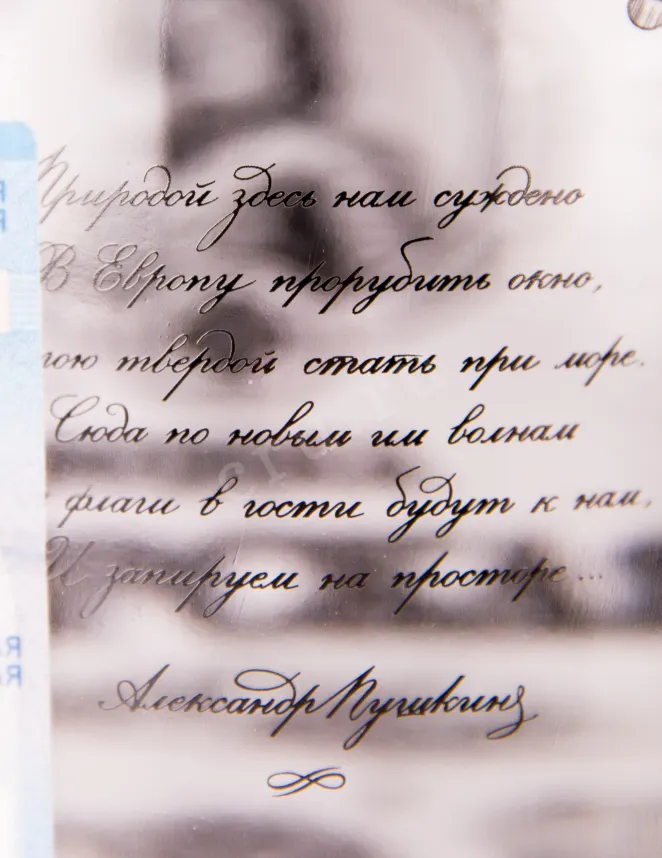 Природой здесь нам суждено
В Европу прорубить окно,
гою твердой стать при море.
Сюда по новым им волнам
флаги в гости будут к нам,
И запируем на просторе...
Александр Пушкинъ